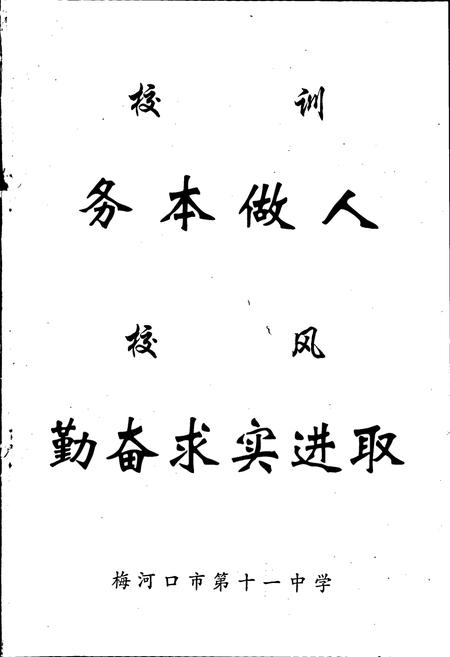 校 训
务本做人
校 风
勤奋求实进取
梅河口市第十一中学